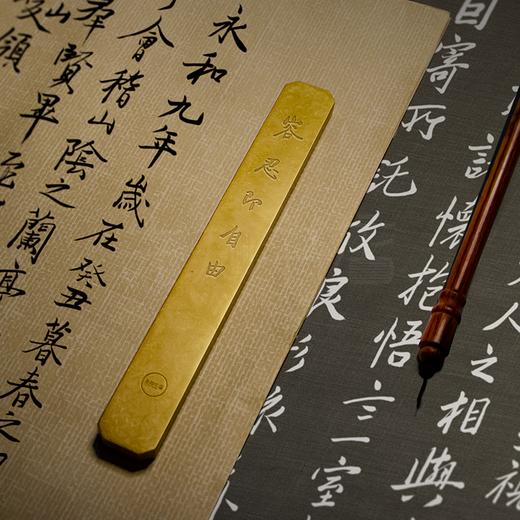 永和九年歲在癸丑暮春之
會稽山陰之蘭亭
羣賢畢至
山峻領
容忍即自由
自寄所託放浪形
諸懷抱悟言一室
人之相與